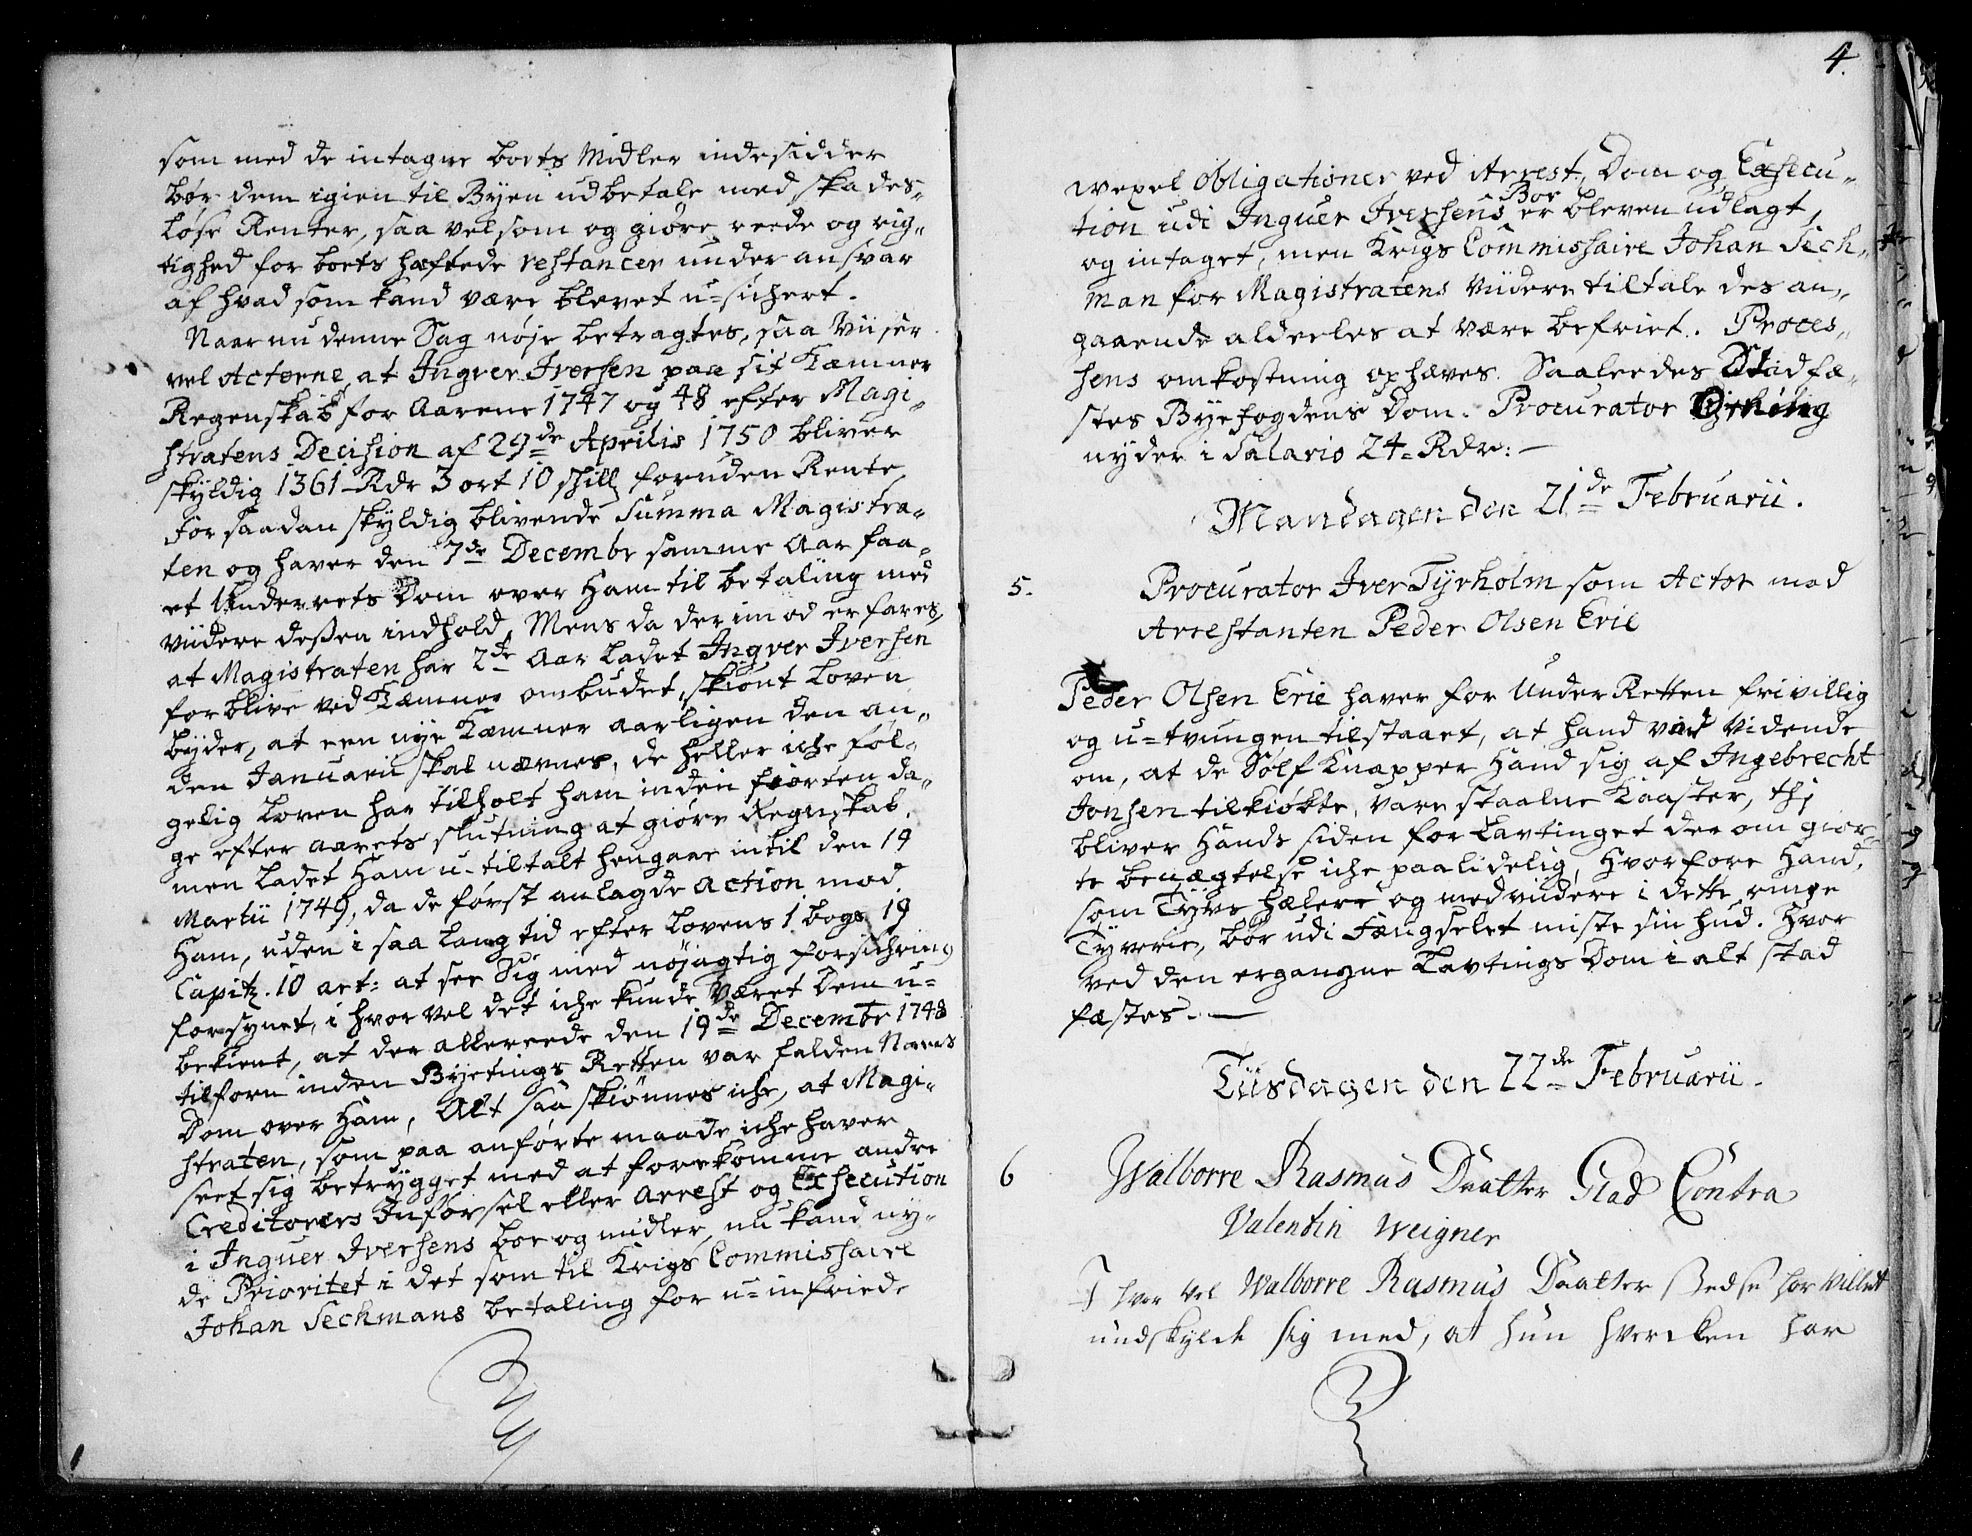 som med de intagne boets Midler indesidder
bør dem igien til Byen udbetale med skades-
løse Renter, saa vel som og giøre reede og rig-
tighed for boets hæftede restancer under ansvar
af hvad som kand være blevet u-sichert.
Naar nu denne Sag nøje betragtes, saa Viiser
vel Acterne, at Ingver Iversen paa sit Kæmner
Regenskab for Aarene 1747 og 48 efter Magi-
stratens Decision af 29de Aprilis 1750 bliver
skyldig 1361 Rdr 3 ort 10 skill foruden Rente
For saadan skyldig blivende Summa Magistra-
ten og haver den 7de Decembr samme Aar faa-
et Underrets Dom over Ham til betaling med
viidere dessen indhold. Mens da derimod erfares,
at Magistraten har 2de Aar ladet Ingver Iversen
forblive ved Kæmner ombudet, skiønt Loven
byder, at een nye Kæmner aarligen den an-
den Januarii skal nævnes, de heller iche føl-
gelig Loven har tilholt ham inden fiorten da-
ge efter aarets slutning at giøre Regnskab,
men ladet Ham u-tiltalt hengaae intil den 19
Martii 1749, da de først anlagde action mod
Ham, uden i saa lang tid efter Lovens 1 bogs 19
Capitz. 10 art: at see Sig med nøjagtig forsichring
forsynet, i hvor vel det iche kunde Været Dem u-
bekient, at der allereede den 19de Decembr 1748
tilforn inden Byetings Retten var falden Næfs
Dom over Ham, Alt saa skiønnes iche, at Magi-
straten, som paa anførte maade iche haver
seet sig betrygget med at forekomme andre
Creditorers Indførsel eller Arrest og Execution
i Inguer Iversens boe og midler, nu kand ny-
de Prioritet i det som til Krigs Commissaire
Johan Sechmans betaling for u-infriede
4.
wexel obligationer ved Arrest, Dom og Execu-
tion udi Inguer Iversens Boe er bleven udlagt
og intaget, men Krigs Commissaire Johan Sech-
man for Magistratens Viidere tiltale des an-
gaaende aldeeles at være befriet. Proces-
sens omkostning ophæves. Saaleedes Stadfæ-
stes Byefogdens Dom. Procurator
nyder i Salario 24 Rdr:
Mandagen den 21de Februarii.
5. Procurator Iver Tyrholm som Actor mod
Arrestanten Peder Olsen Erie
Peder Olsen Erie haver for Under Retten frivillig
og u-tvungen tilstaaet, at hand var vidende
om, at de Sølf Knapper Hand sig af Ingebrecht
Jonsen tilkiøbte, vare staalne Kaaster, thj
bliver Hands siden for Lavtinget der om gior-
te benægtelse iche paalidelig, Hvorfore Hand,
som Tyvs hælere og medvidere i dette ringe
Tyverie, bør udi Fængselet miste sin hud. Hvor
ved den ergangne Lavtings Dom i alt stad
fæstes.
Tiisdagen den 22de Februarii.
6 Walborre Rasmus Daatter Glad Contra
Valentin Weigner
I hvor vel Walborre Rasmus Daatter stedse har villet
undskylde sig med, at hun hvercken har